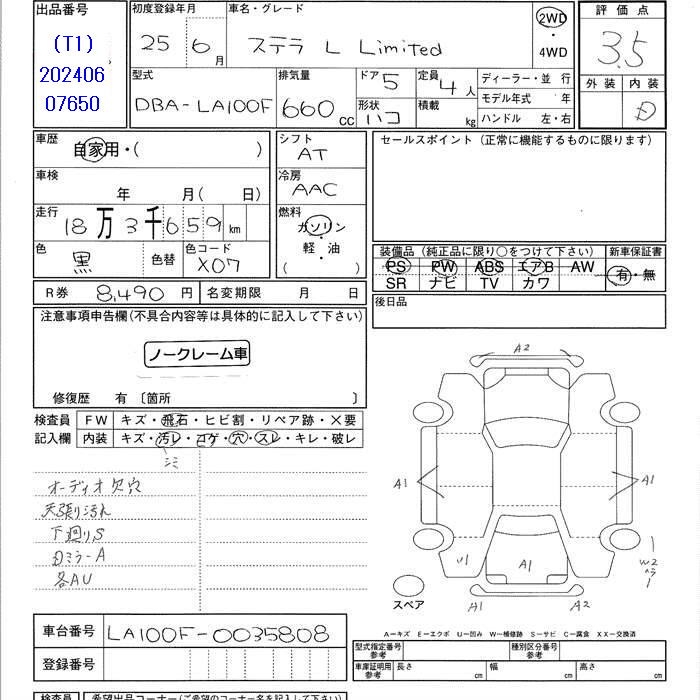 出品番号
(T1)
202406
07650
初度登録年月
25年 6月
車名・グレード
ステラ L Limited
2WD
・
4WD
評価点
3.5
外装 内装
D
型式
DBA-LA100F
排気量
660 cc
ドア 5
形状 ハコ
定員 4人
積載 kg
ディーラー・並行
モデル年式 年
ハンドル 左・右
車歴
自家用・( )
車検
年 月( 日)
走行
18万3千659km
色
黒 色替
色コード
X07
シフト
AT
冷房
AAC
燃料
ガソリン
・
軽・油
( )
セールスポイント (正常に機能するものに限ります)
装備品 (純正品に限り○をつけて下さい)
PS PW ABS エアB AW
SR ナビ TV カワ
新車保証書
有・無
R券 8,490円 名変期限 月 日
後日品
注意事項申告欄(不具合内容等は具体的に記入して下さい)
ノークレーム車
修復歴 有 〔箇所 〕
検査員
記入欄
FW キズ・飛石・ヒビ割・リペア跡・X要
内装 キズ・汚レ・コゲ・穴・スレ・キレ・破レ
シミ
オーディオ欠穴
天張り汚れ
下廻りS
Dミラ-A
各AU
A2
A1
A1
U1
A1
W2
ヘラ
A1
A2
スペア
車台番号 LA100F-0035808
登録番号
A-キズ E-エクボ U-凹み W-補修跡 S-サビ C-腐食 XX-交換済
型式指定番号
参考
種別区分番号
参考
車庫証明用
参考
長さ cm 幅 cm 高さ cm
検査員 希望出品コーナー(ご希望のコーナー名を記入して下さい)